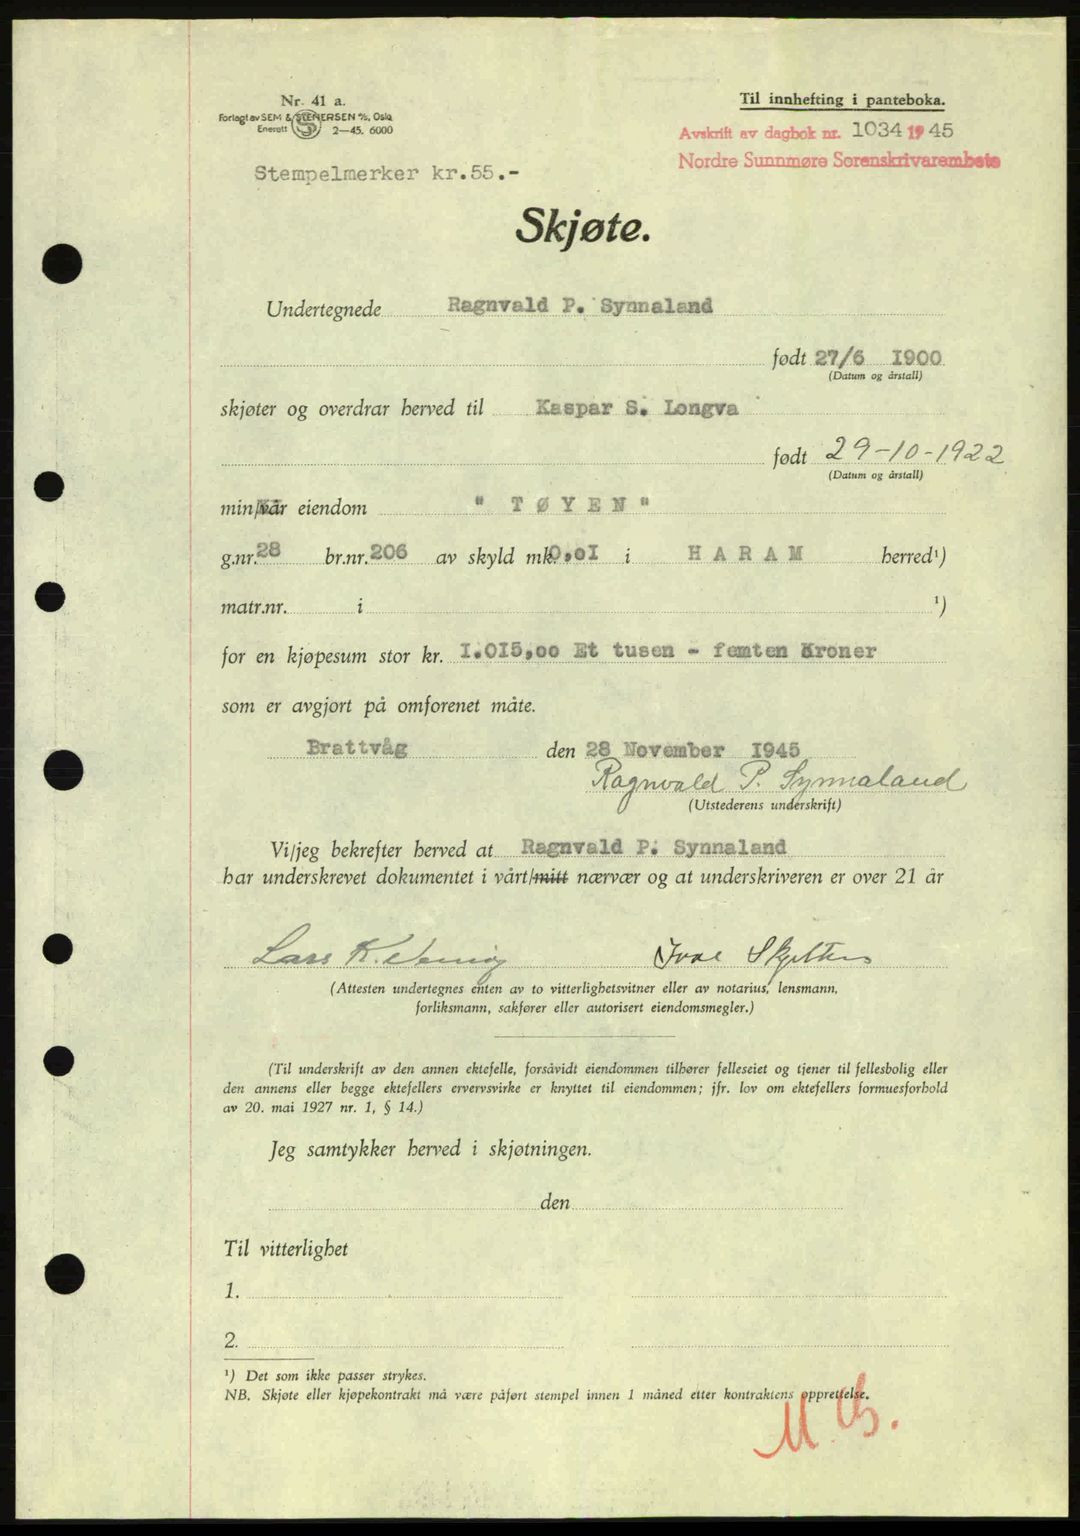 Nr. 41 a.
Forlagt av SEM & STENERSEN A/S, Oslo
Enerett 2-45. 6000
Til innhefting i panteboka.
Avskrift av dagbok nr. 1034 1945
Nordre Sunnmøre Sorenskrivarembete
Stempelmerker kr.55.-
Skjøte.
Undertegnede Ragnvald P. Synnaland
født 27/6 1900
(Datum og årstall)
skjøter og overdrar herved til Kaspar S. Longva
født 29-10-1922
(Datum og årstall)
min/vår eiendom " T Ø Y E N "
g.nr. 28 br.nr. 206 av skyld mk. 0,01 i H A R A M herred¹)
matr.nr. i ¹)
for en kjøpesum stor kr. 1.015,00 Et tusen - femten Kroner
som er avgjort på omforenet måte.
Brattvåg den 28 November 1945
Ragnvald P. Synnaland
(Utstederens underskrift)
Vi/jeg bekrefter herved at Ragnvald P. Synnaland
har underskrevet dokumentet i vårt/mitt nærvær og at underskriveren er over 21 år
Lars K.
(Attesten undertegnes enten av to vitterlighetsvitner eller av notarius, lensmann,
forliksmann, sakfører eller autorisert eiendomsmegler.)
(Til underskrift av den annen ektefelle, forsåvidt eiendommen tilhører felleseiet og tjener til fellesbolig eller
den annens eller begge ektefellers ervervsvirke er knyttet til eiendommen; jfr. lov om ektefellers formuesforhold
av 20. mai 1927 nr. 1, § 14.)
Jeg samtykker herved i skjøtningen.
den
Til vitterlighet
1.
2.
¹) Det som ikke passer strykes.
NB. Skjøte eller kjøpekontrakt må være påført stempel innen 1 måned etter kontraktens opprettelse.